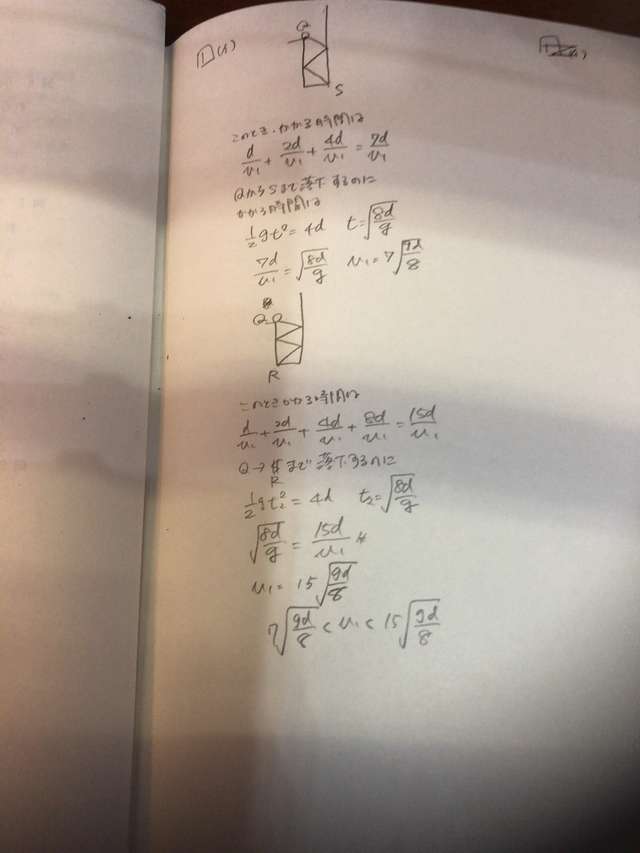 1 (1)
Q
S
このとき、かかる時間は
d/v₁ + 2d/v₁ + 4d/v₁ = 7d/v₁
QからSまで落下するのに
かかる時間は
1/2 gt² = 4d t=√(8d/g)
7d/v₁ = √(8d/g) v₁=7√(gd/8)
Q
R
このときかかる時間は
d/v₁ + 2d/v₁ + 4d/v₁ + 8d/v₁ = 15d/v₁
Q→Rまで落下するのに
1/2 gt₂² = 4d t₂=√(8d/g)
√(8d/g) = 15d/v₁
v₁= 15√(gd/8)
7√(gd/8) < v₁ < 15√(gd/8)